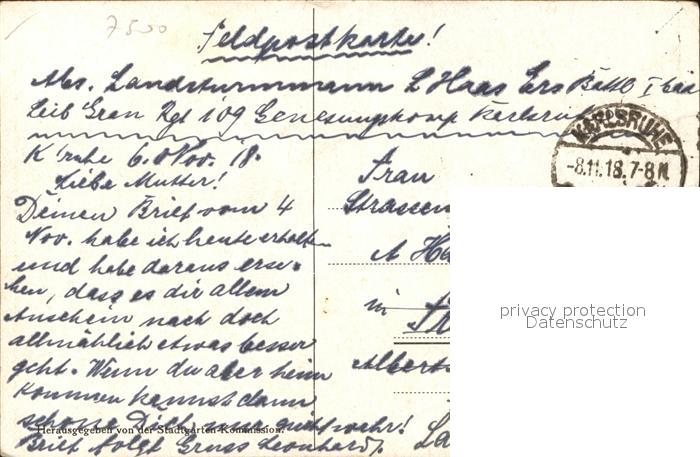 7500
Feldpostkarte!
Abs. Landsturmmann L Haas Ers Batl I bad
Leib Gren Rgt 109 Genesungskomp Karlsruhe
KARLSRUHE
-8.11.18.7-8 N.
K'ruhe 6. Nov. 18.
Liebe Mutter!
Deinen Brief vom 4
Nov. habe ich heute erhalten
und habe daraus erse-
hen, dass es dir allem
Anschein nach doch
allmählich etwas besser
geht. Wenn du aber heim
kommen kannst dann
schone Dich nicht wahr!
Brief folgt Gruss Leonhard
Herausgegeben von der Stadtgarten-Kommission.
Frau
Strassen
A Ha
in
Alberts
La
privacy protection
Datenschutz